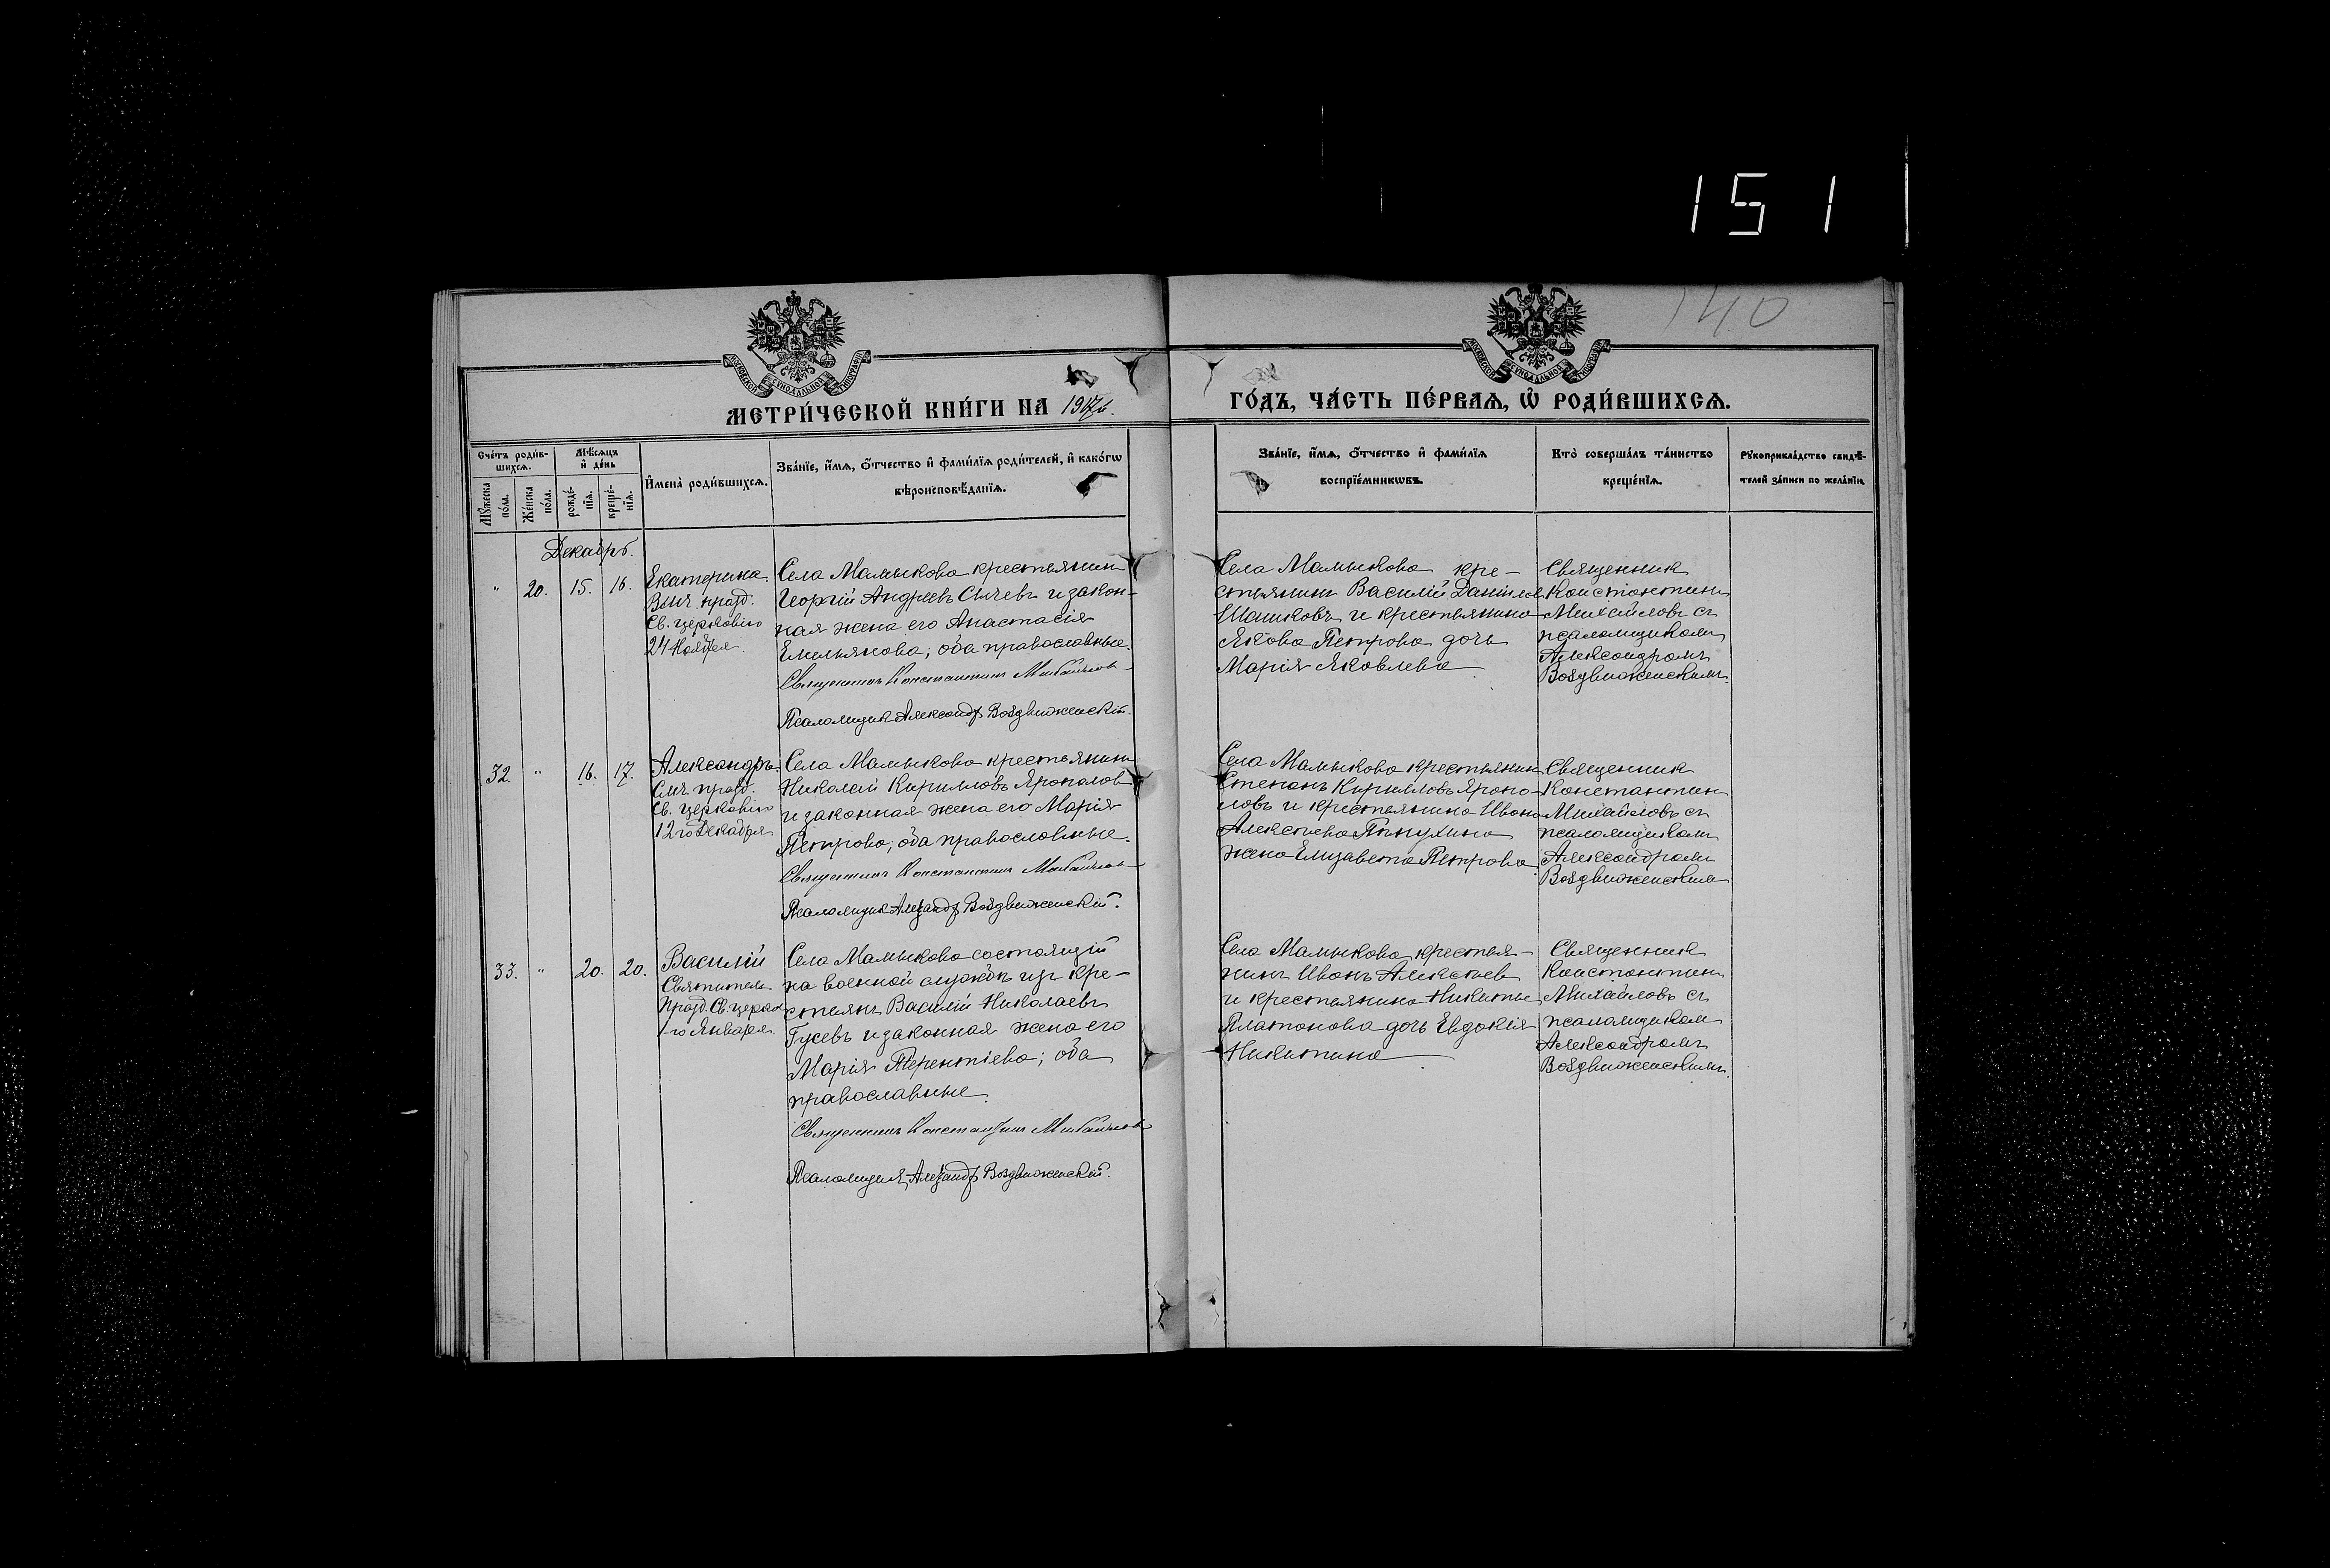 151
140
МОСКОВСКОЙ СѴНОДАЛЬНОЙ ТИПОГРАФІИ
МОСКОВСКОЙ СѴНОДАЛЬНОЙ ТИПОГРАФІИ
МЕТРИ́ЧЕСКОЙ КНИ́ГИ НА 1917й.
ГО́ДЪ, ЧА́СТЬ ПЕ́РВАѦ, Ѡ҆ РОДИ́ВШИХСѦ.
Сче́тъ роди́в-
шихсѧ.
Мѣ́сѧцъ
и҆ де́нь
Мꙋ́жеска
по́ла.
Же́нска
по́ла.
рожде́-
нїѧ.
креще́-
нїѧ.
И҆мена̀ роди́вшихсѧ.
Зва́нїе, и҆́мѧ, ѻ҆́тчество и҆ фами́лїѧ роди́телей, и҆ како́гѡ
вѣроисповѣ́данїѧ.
Зва́нїе, и҆́мѧ, ѻ҆́тчество и҆ фами́лїѧ
воспрїе́мникѡвъ.
Кто̀ соверша́лъ та́инство
креще́нїѧ.
Рꙋкоприкла́дство свидѣ́-
телей за́писи по жела́нїю.
Декабрь.
" 20. 15. 16.
Екатерина.
Вмч. празд.
Св. церковію
24 Ноября.
Села Мамыково крестьянин
Георгій Андреевъ Сычевъ и закон-
ная жена его Анастасія
Емельянова; оба православные.
Священникъ Константинъ Михайлов
Псаломщик Александр Воздвиженскій.
Села Мамыково кре-
стьянин Василій Данилов
Шашковъ и крестьянина
Якова Петрова дочь
Марія Яковлева
Священник
Константин
Михайловъ съ
псаломщиком
Александромъ
Воздвиженскимъ.
32. " 16. 17.
Александръ.
Смч. празд.
Св. церковію
12го Декабря
Села Мамыково крестьянин
Николай Кирилловъ Ярополов
и законная жена его Марія
Петрова; оба православные.
Священникъ Константинъ Михайлов
Псаломщик Александр Воздвиженскій.
Села Мамыково крестьянин
Степанъ Кирилловъ Яропо-
ловъ и крестьянина Ивана
Алексеева
жена Елизавета Петрова
Священник
Константин
Михайловъ съ
псаломщиком
Александром
Воздвиженским
33. " 20. 20.
Василій
Святитель
Празд. Св. церков
-го Января
Села Мамыково состоящій
на военной службѣ изъ кре-
стьянъ Василій Николаевъ
Гусевъ и законная жена его
Марія Терентіева; оба
православные.
Священникъ Константинъ Михайлов
Псаломщик Александр Воздвиженскій.
Села Мамыково крестья-
нинъ Иванъ Алексеев
и крестьянина Никиты
Платонова дочь Евдокія
Никитина
Священник
Константин
Михайловъ съ
псаломщиком
Александромъ
Воздвиженскимъ.